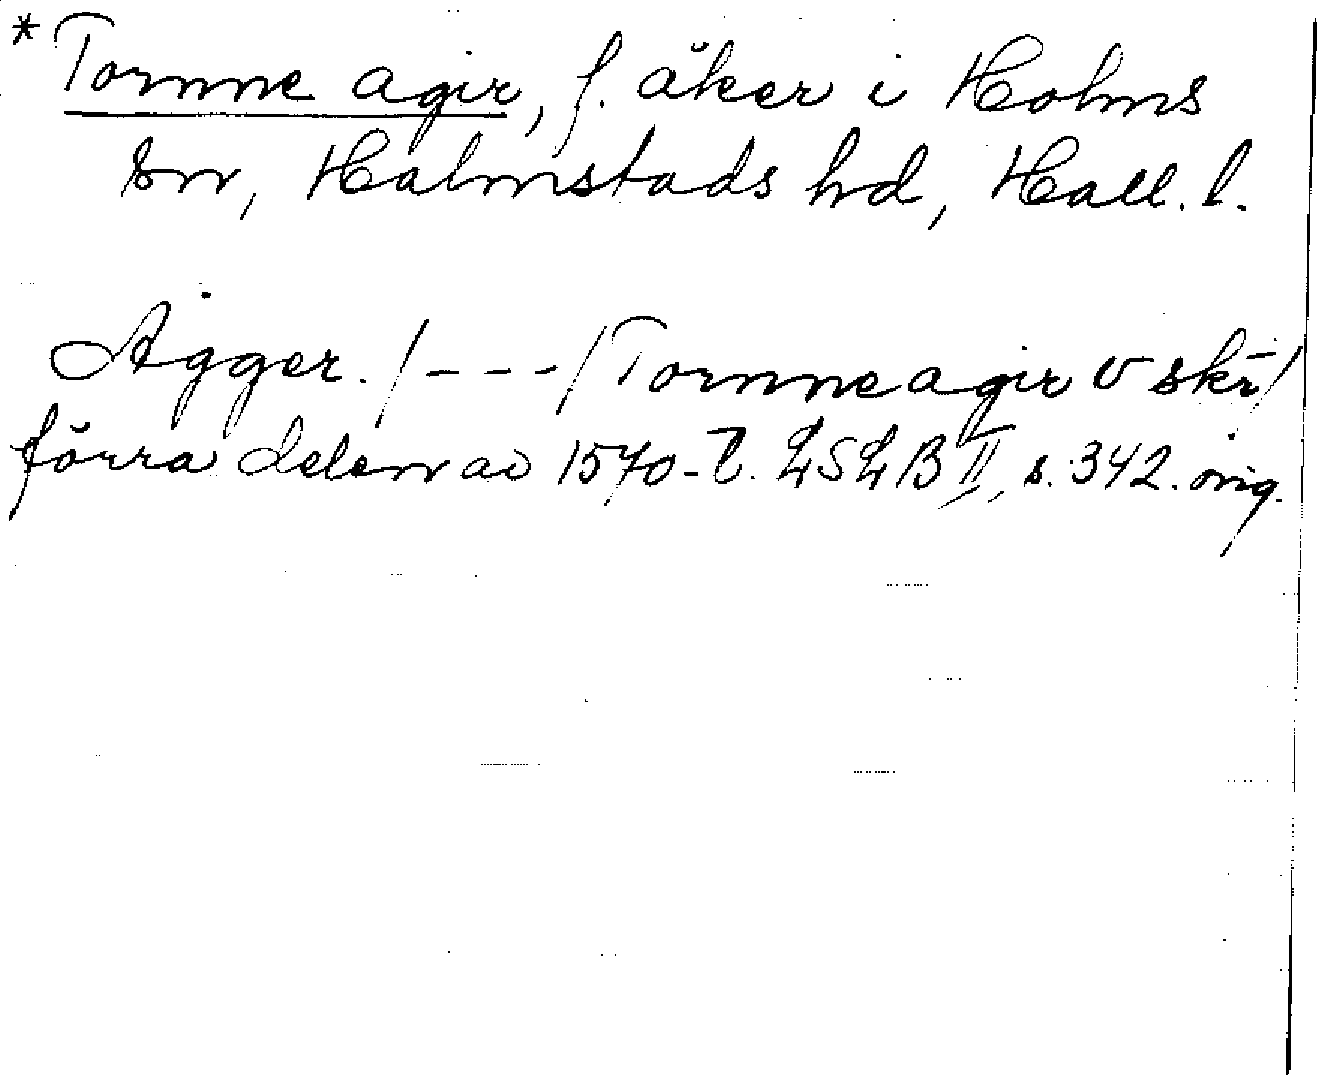 *Tornne agir, f. åker i Holms
sn, Halmstads hd, Hall. l.
Agger. /---/ Tornne agir V skr/
förra delen av 1570-t. LSLB II, s. 342. orig.